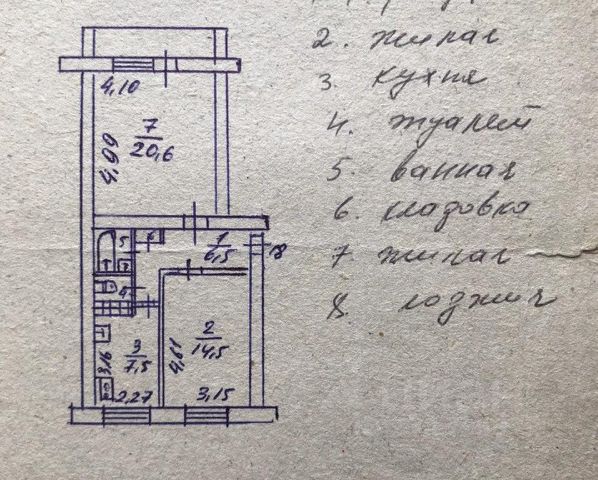 2. жилая
3. кухня
4. туалет
5. ванная
6. кладовка
7. жилая
8. лоджия
4,10
7
20,6
4,99
5
6
1
6,5
18
4
2
14,5
4,61
3,15
3
7,5
3,16
2,27